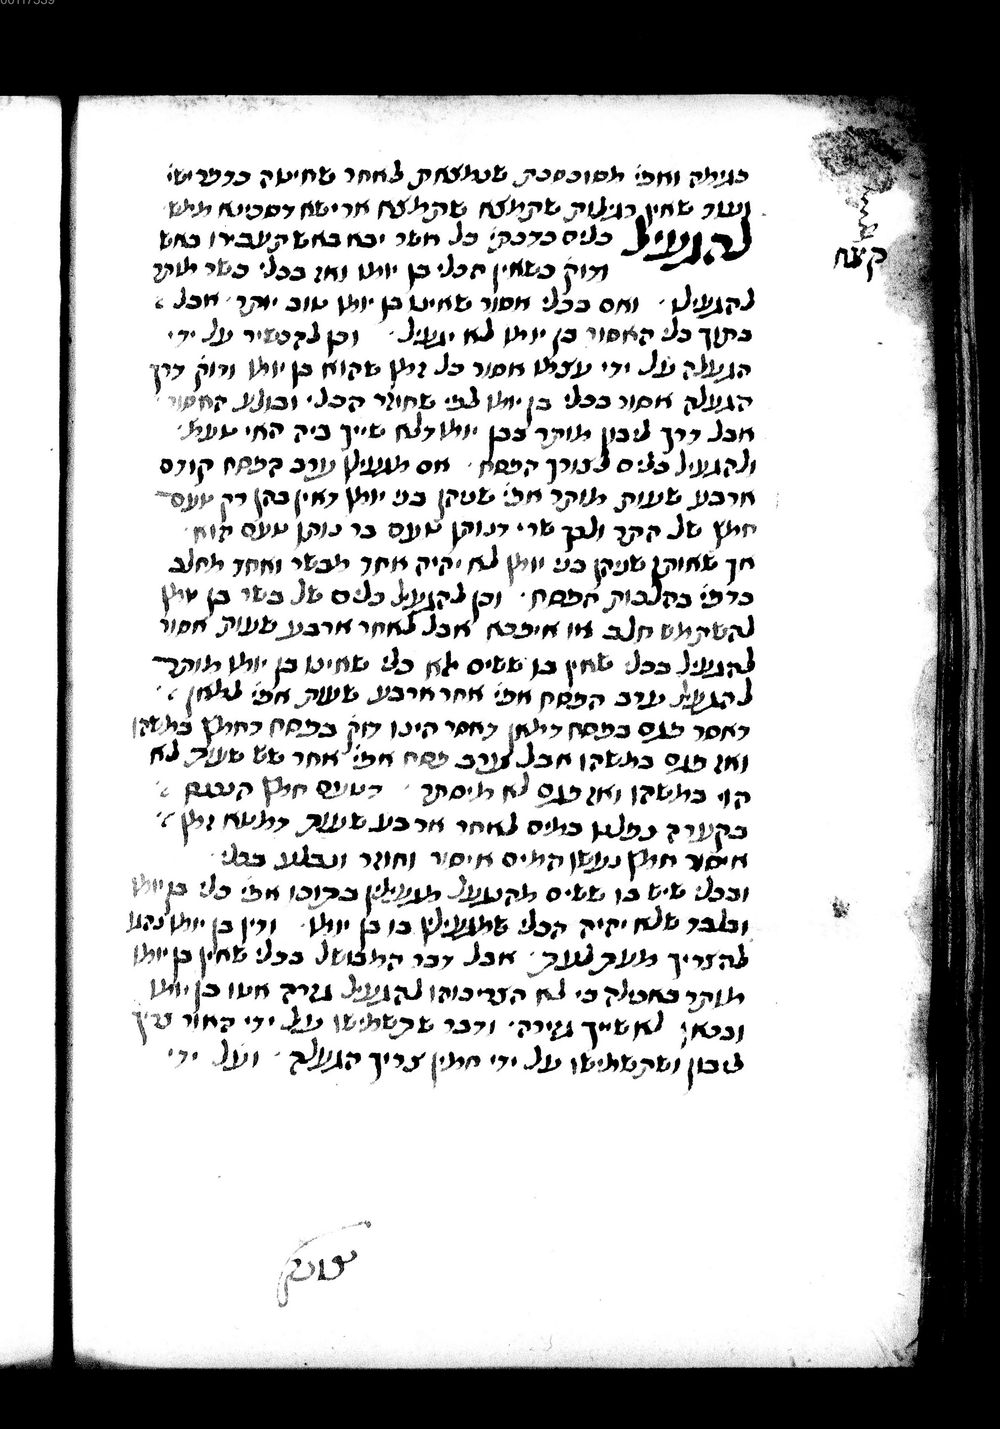 פגימה ואפי' מסוכסכת שנמצאת לאחר שחיטה כדפרישי'
ועוד שאין רגילות שתמצא שתמצא ארישא דסכינא ממש
להגעיל כלים כדכתי' כל אשר יבא באש תעבירו באש
ודוק' כשאין הכלי בן יומו ואז בכלי כשר מותר
להגעילו · ואם בכלי אסור שאינו בן יומו טוב יותר · אבל
בתוך כלי האסור בן יומו לא יגעיל · וכן להכשיר על ידי
הגעלה על ידי עצמו אסור כל זמן שהוא בן יומו ודוק' דרך
הגעלה אסור בכלי בן יומו לפי שחוזר הכלי ובולע האיסור ·
אבל דרך ליבון מותר בבן יומו דלא שייך ביה האי טעמ' ·
ולהגעיל כלים לצורך הפסח · אם מגעילין ערב הפסח קודם
ארבע שעות מותר אפי' שניהן בני יומן דאין בהן רק טעם
חמץ של התר ולכך שרי דנותן טעם בר נותן טעם הוא ·
אך שאותן שניהן בני יומן לא יהיה אחד מבשר ואחד מחלב
כדפי' בהלכות הפסח · וכן להגעיל כלים של בשר בן יומן
להשתמש חלב או איפכא אבל לאחר ארבע שעות אסור
להגעיל בכלי שאין בו ששים אלא כלי שאינו בן יומו מותר
להגעיל ערב הפסח אפי' אחר ארבע שעות אפי' למאן
דאסר פגם בפסח דמאן דאסר היינו דוק' בפסח דחמץ במשהו
ואז פגם במשהו אבל ערב פסח אפי' אחר שש שעות לא
הוי במשהו ואז פגם לא מיתסר · דטעם חמץ הנפגם
בקערה נפלטו במים לאחר ארבע שעות דמטא זמן
איסור חמץ נעשו המים איסור וחוזר ונבלע בכלי ·
ובכלי שיש בו ששים מהנגעל מגעילין בתוכו אפי' כלי בן יומו
ובלבד שלא יהיה הכלי שמגעילין בו בן יומו · ודין בן יומו נהגו
להצריך מעת לעת · אבל דבר המבושל בכלי שאין בן יומו
מותר באכילה כי לא הצריכוהו להגעיל גזרה אטו בן יומו
ובכאן לא שייך גזירה · ודבר שתשמישו על ידי האור צריך
ליבון ושתשמישו על ידי חמין צריך הגעלה · ועל ידי
קצח